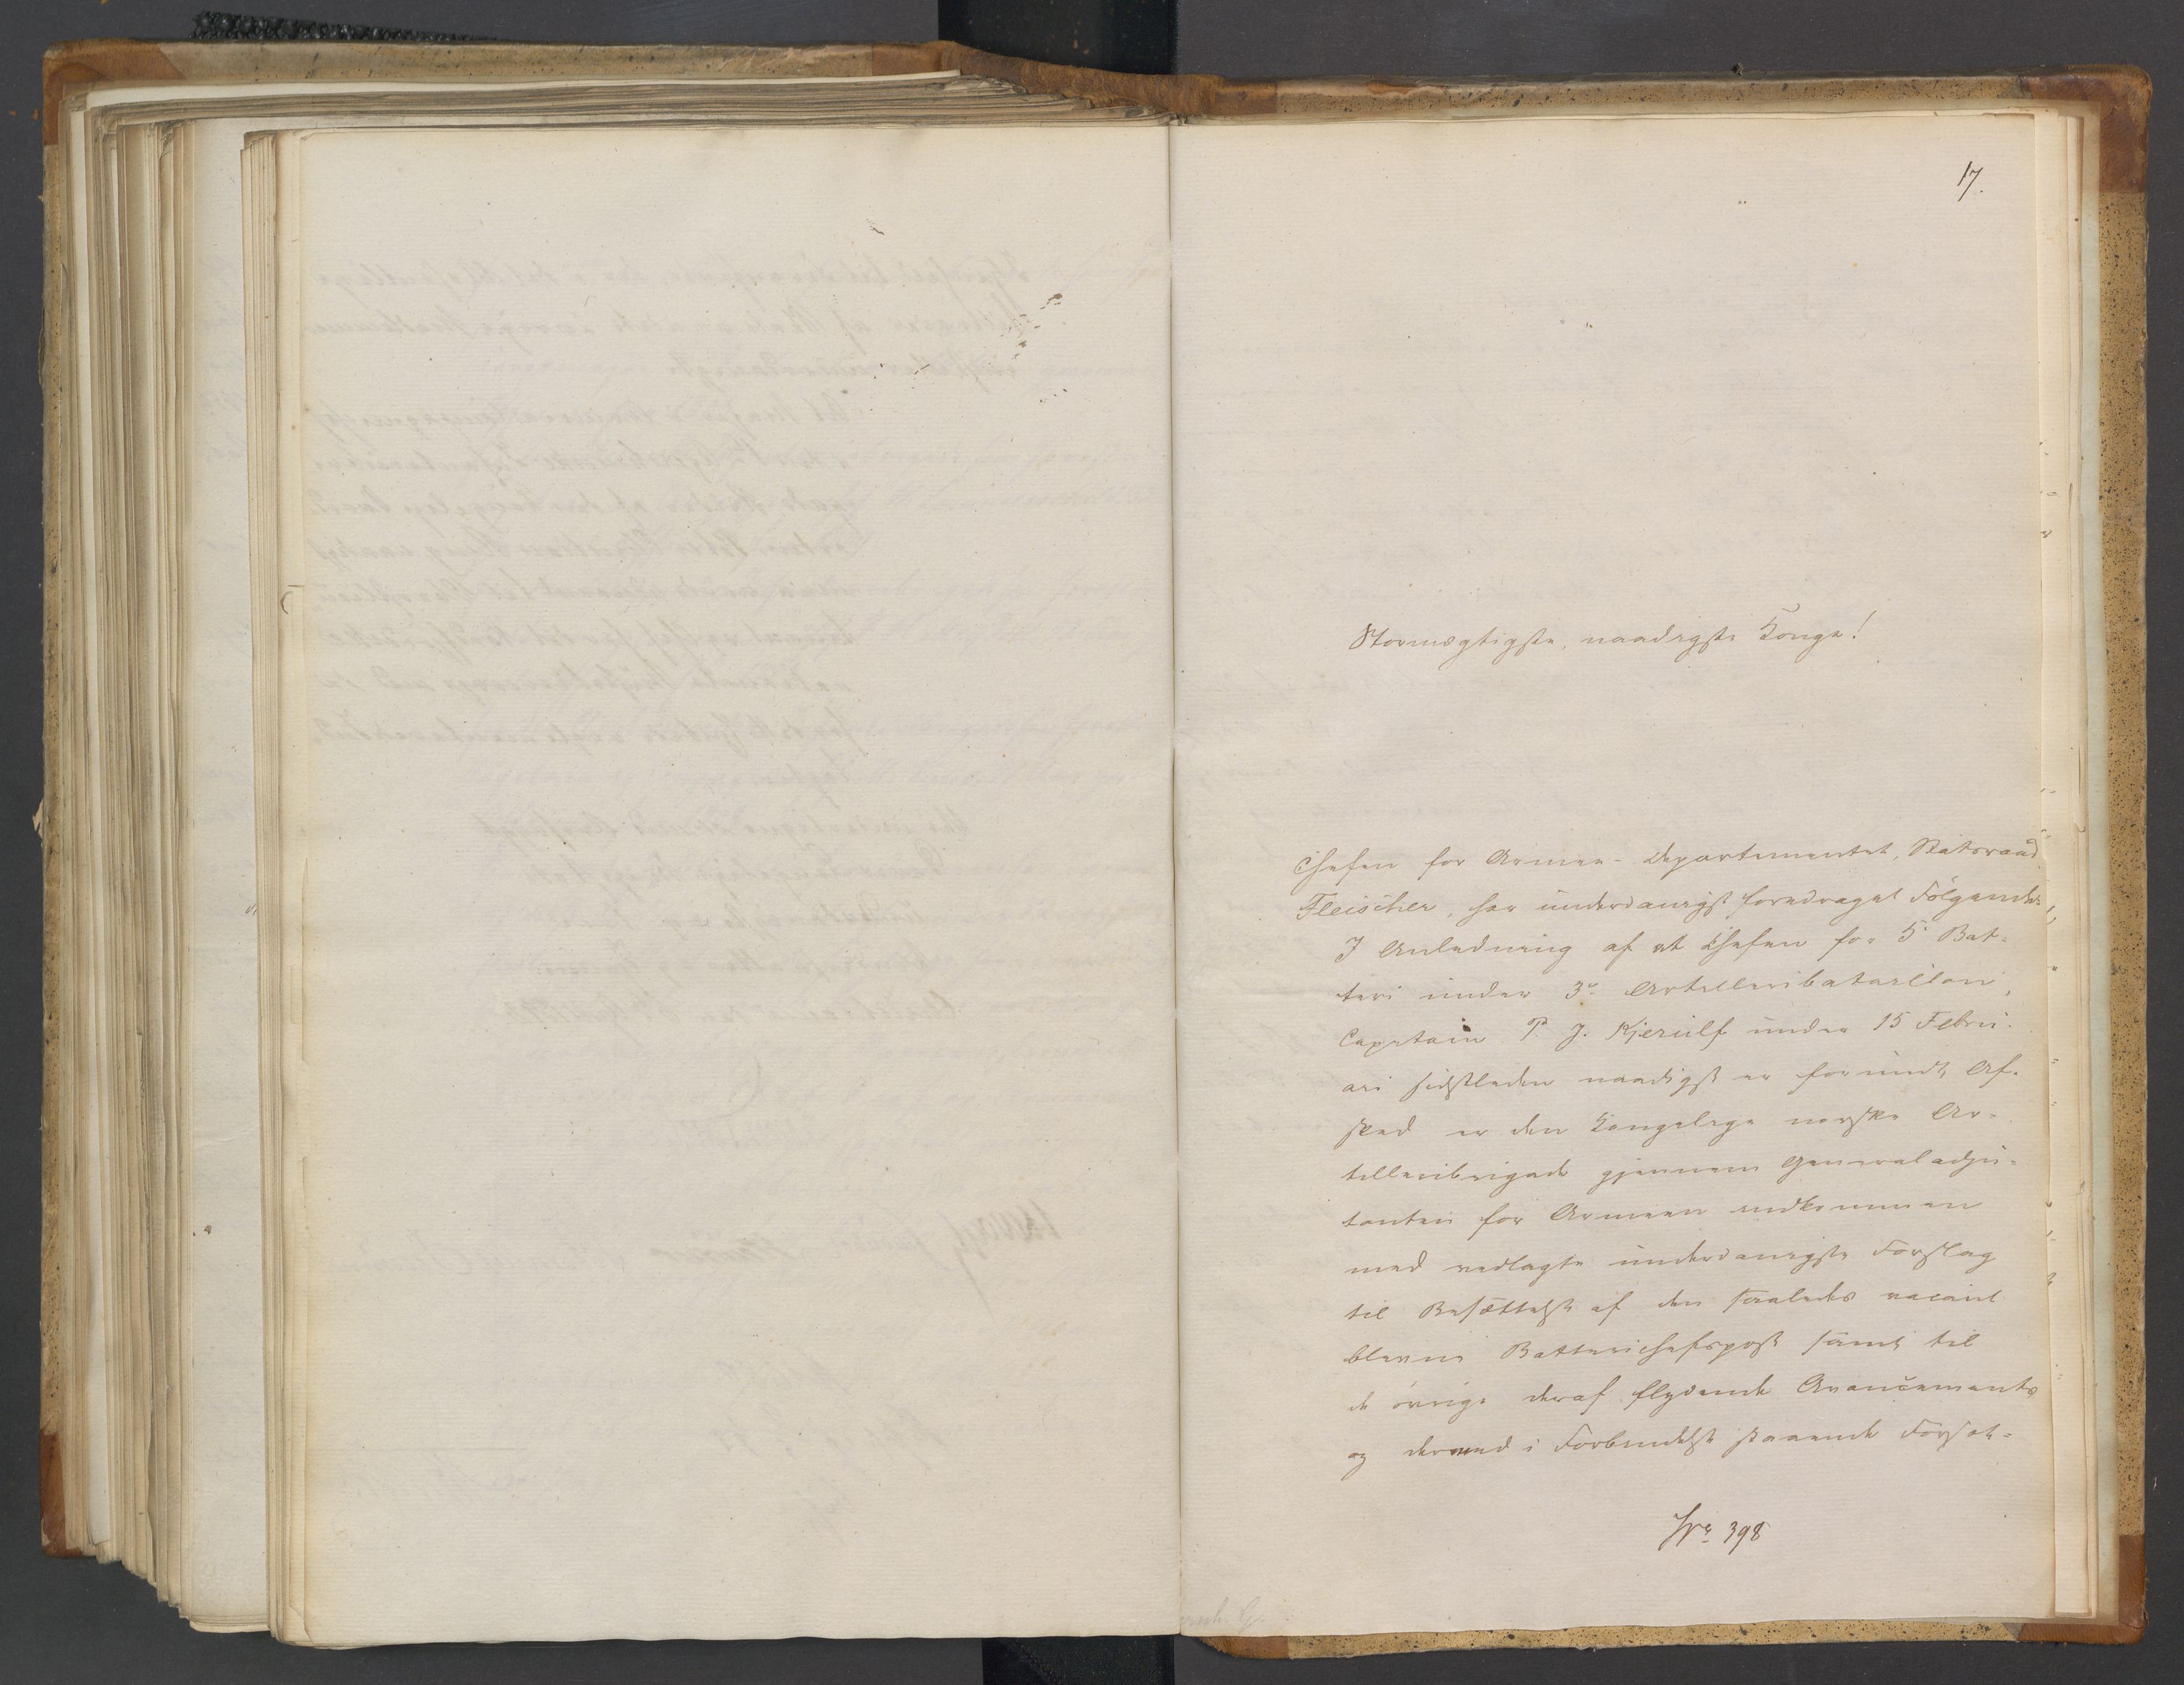 17.
Stormægtigste, naadigste Konge!
Chefen for Armee-Departementet, Statsraad
Fleischer, har underdanigst foredraget Følgende:
I Anledning af at Chefen for 5 Bat-
teri under 3die Artilleribataillon,
Capitain P. J. Kjerulf under 15 Febru-
ari sidstleden naadigst er forundt Af-
sked er den Kongelige norske Ar-
tilleribrigade gjennem Generaladju-
tanten for Armeen indkommen
med vedlagte underdanigste Forslag
til Besættelse af den saaledes vacant
blevne Batterichefspost samt til
de øvrige deraf flydende Avancements
og dermed i Forbindelse staaende Forsæt-
No 398